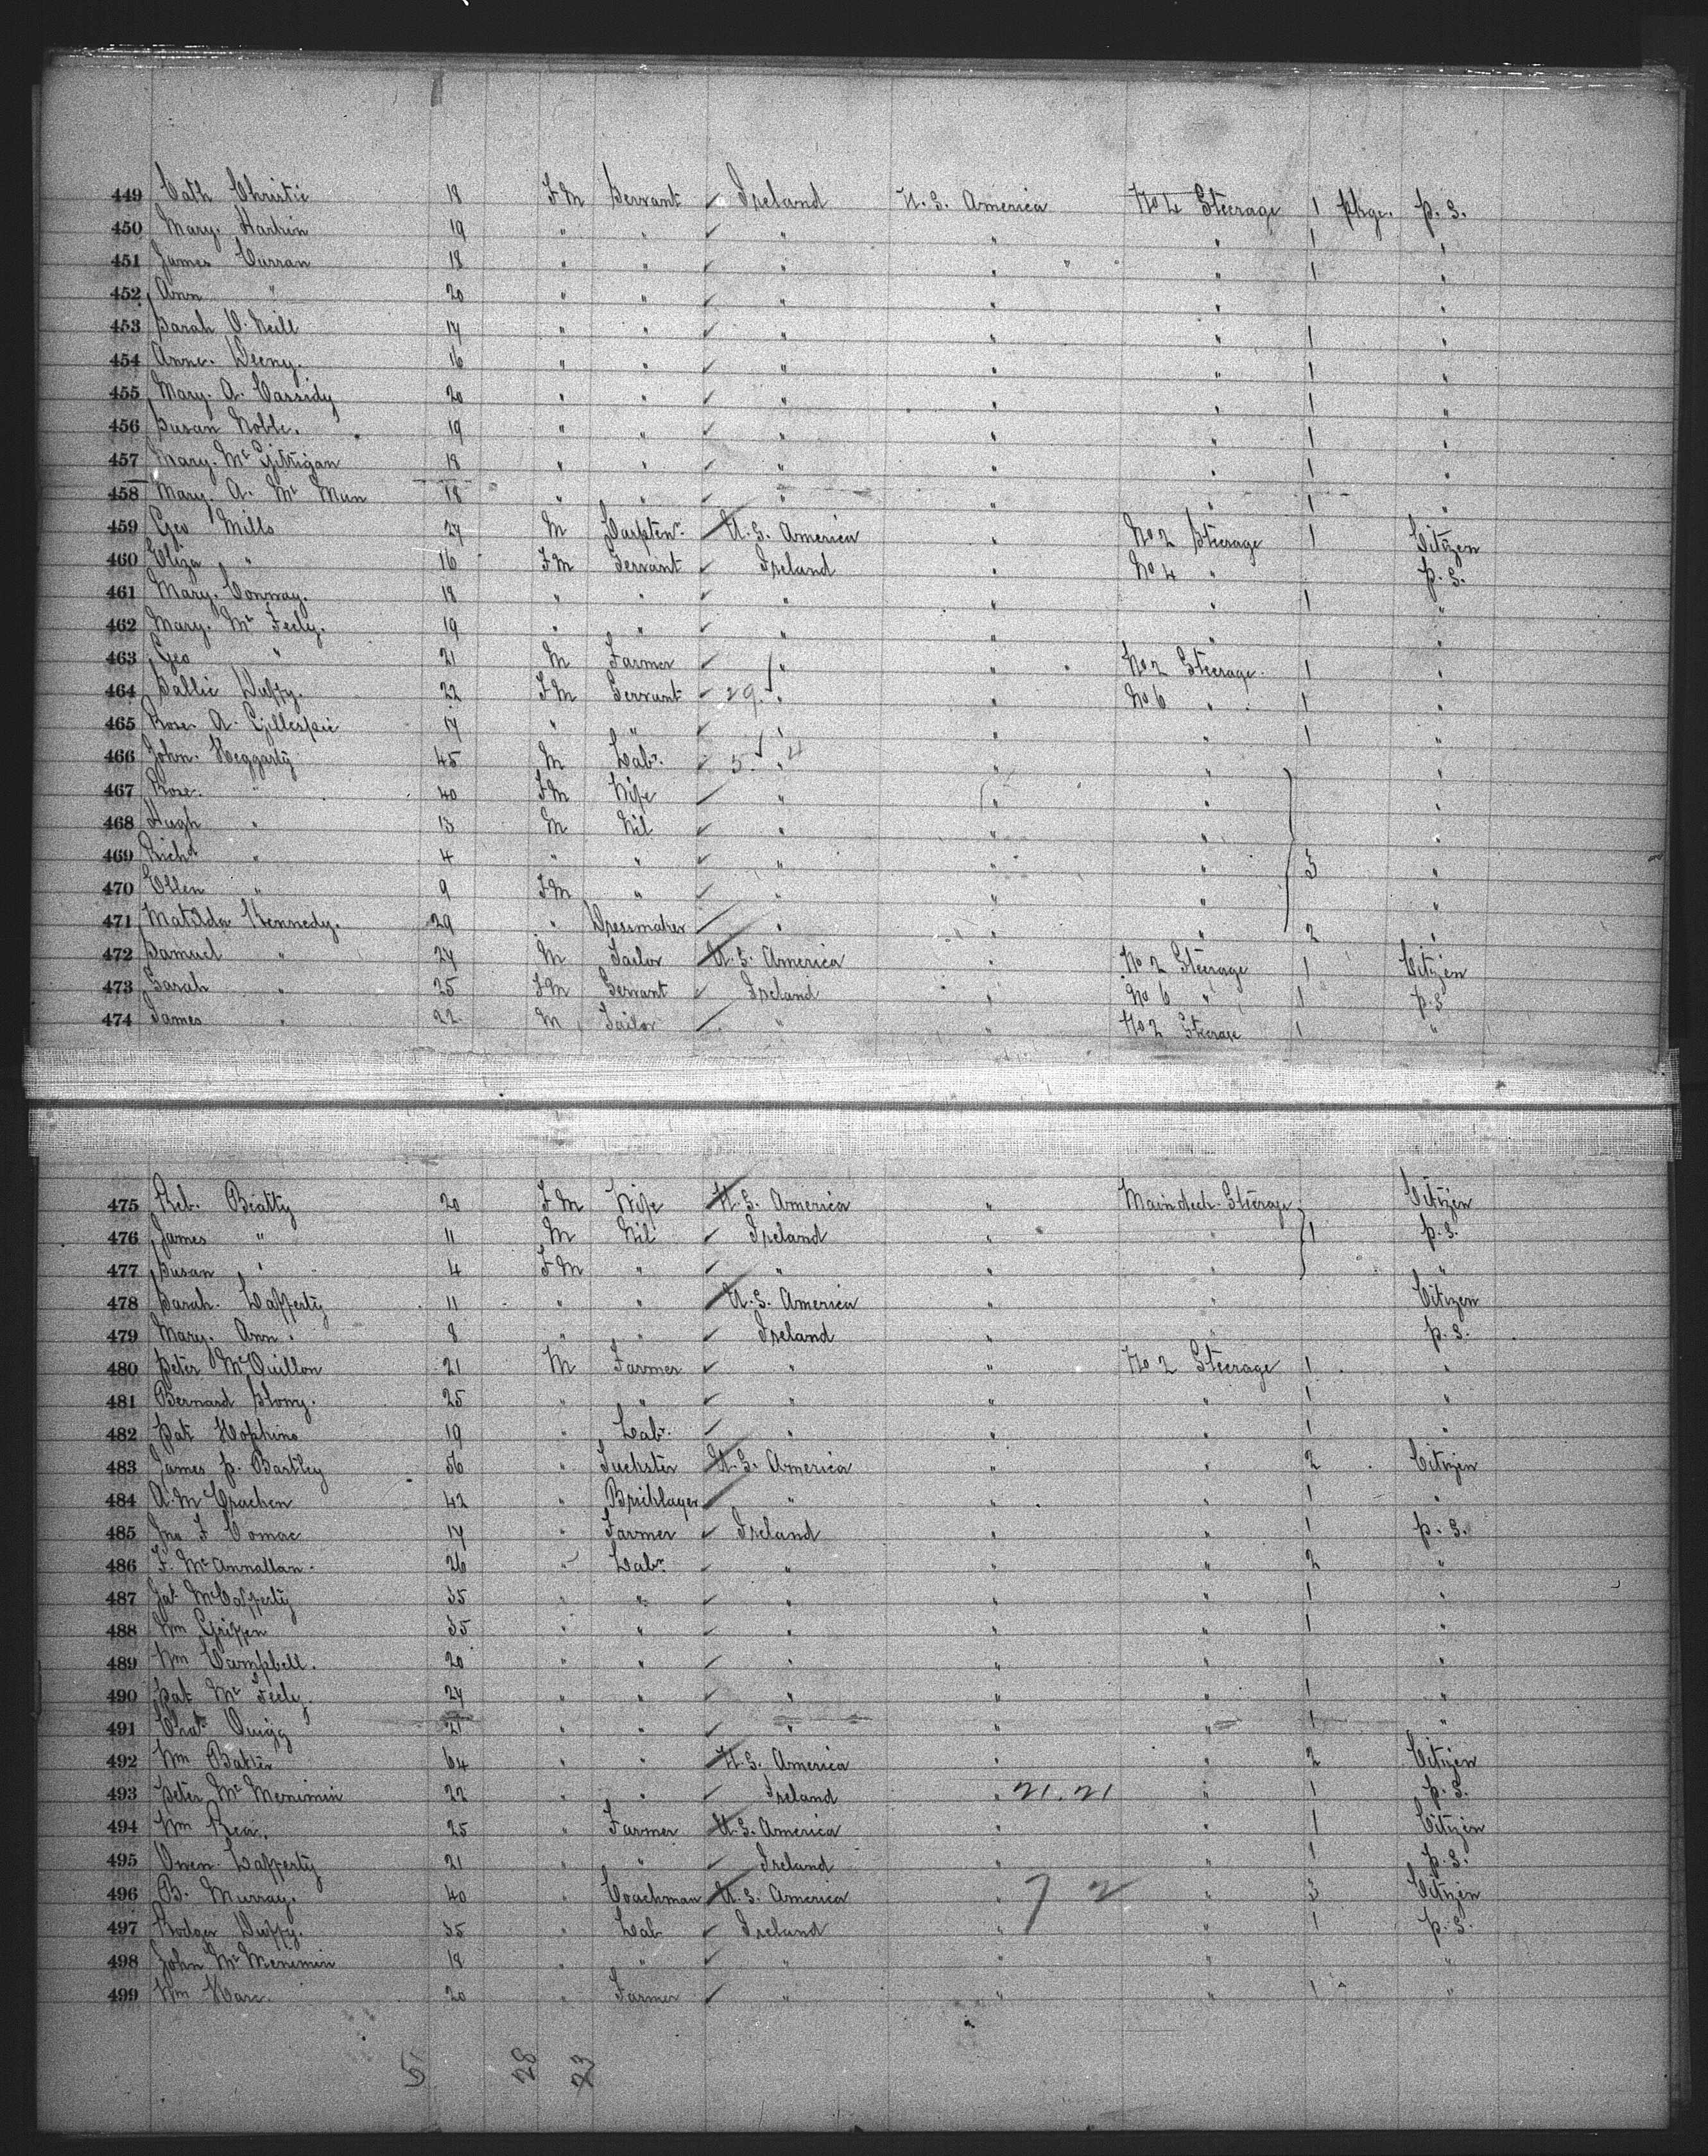 449 Cath Christie 18 F M Servant ✓ Ireland U. S. America No 4 Steerage 1 pkge. p. S.
450 Mary. Harkin 19 " " ✓ " " " 1 "
451 James Curran 18 " " ✓ " " " 1 "
452 Ann " 20 " " ✓ " " " "
453 Sarah O. Neill 17 " " ✓ " " " 1 "
454 Anne. Deeny. 16 " " ✓ " " " 1 "
455 Mary. A. Cassidy 20 " " ✓ " " " 1 "
456 Susan Noble. 19 " " ✓ " " " 1 "
457 Mary. Mc Gittigan 18 " " ✓ " " " 1 "
458 Mary. A. Mc Mun 18 " " ✓ " " " 1 "
459 Geo Mills 27 M Carpten. U. S. America " No 2 Steerage 1 Citizen
460 Eliza " 16 F M Servant ✓ Ireland " No 4 " p. S.
461 Mary. Conway. 18 " " ✓ " " " 1 "
462 Mary. Mc Feely. 19 " " ✓ " " " "
463 Geo " 21 M Farmer ✓ " " No 2 Steerage. 1 "
464 Sallie Duffy. 22 F M Servant ✓ 29. " " No 6 " 1 "
465 Rose. A. Gillespie 17 " " " " " 1 "
466 John. Heggarty 45 M Labr. ✓ 5. " 4 " " "
467 Rose. " 40 F M Wife ✓ " " " "
468 Hugh " 13 M Nil ✓ " " " "
469 Richd " 4 " " ✓ " " " 3 "
470 Ellen " 9 F M " ✓ " " " "
471 Matilda Kennedy. 29 " Dressmaker ✓ " " " 2 "
472 Samuel " 27 M Tailor U. S. America " No 2 Steerage 1 Citizen
473 Sarah " 25 F M Servant ✓ Ireland " No 6 " 1 p. S
474 James " 22 M Tailor ✓ " " No 2 Steerage 1 "
475 Reb. Beatty 20 F M Wife U. S. America " Maindeck Steerage Citizen
476 James " 11 M Nil ✓ Ireland " " 1 p. S.
477 Susan " 4 F M " ✓ " " " "
478 Sarah. Lafferty 11 " " U. S. America " " Citizen
479 Mary. Ann " 8 " " ✓ Ireland " " p. S.
480 Peter McQuillon 21 M Farmer ✓ " " No 2 Steerage 1 "
481 Bernard Slowy. 25 " " ✓ " " " 1 "
482 Pat Hopkins 19 " Labr. ✓ " " " 1 "
483 James P. Bartley 56 " U. S. America " " 2 Citizen
484 A. McCrachen 42 " Bricklayer " " " 1 "
485 Jno F Comac 17 " Farmer ✓ Ireland " " 1 p. S.
486 F. McAnnallan. 26 " Labr. ✓ " " " 2 "
487 Jas McCafferty 35 " " ✓ " " " 1 "
488 Wm Griffen 35 " " ✓ " " " 1 "
489 Wm Campbell. 20 " " ✓ " " " "
490 Pat Mc Feely. 27 " " ✓ " " " 1 "
491 Chas Quigg 21 " " ✓ " " " 1 "
492 Wm 64 " " U. S. America " " 2 Citizen
493 Peter Mc Menimin 22 " " ✓ Ireland " 21. 21 " 1 p. S.
494 Wm Rea. 25 " Farmer U. S. America " " 1 Citizen
495 Owen Lafferty 21 " " ✓ Ireland " " 1 p. S.
496 B. Murray. 40 " Coachman U. S. America " 7 2 " 3 Citizen
497 Rodger Duffy. 35 " Lab ✓ Ireland " " 1 p. S.
498 John Mc Menimin 18 " " ✓ " " " "
499 Wm 20 " Farmer ✓ " " " 1 "
5 28 23